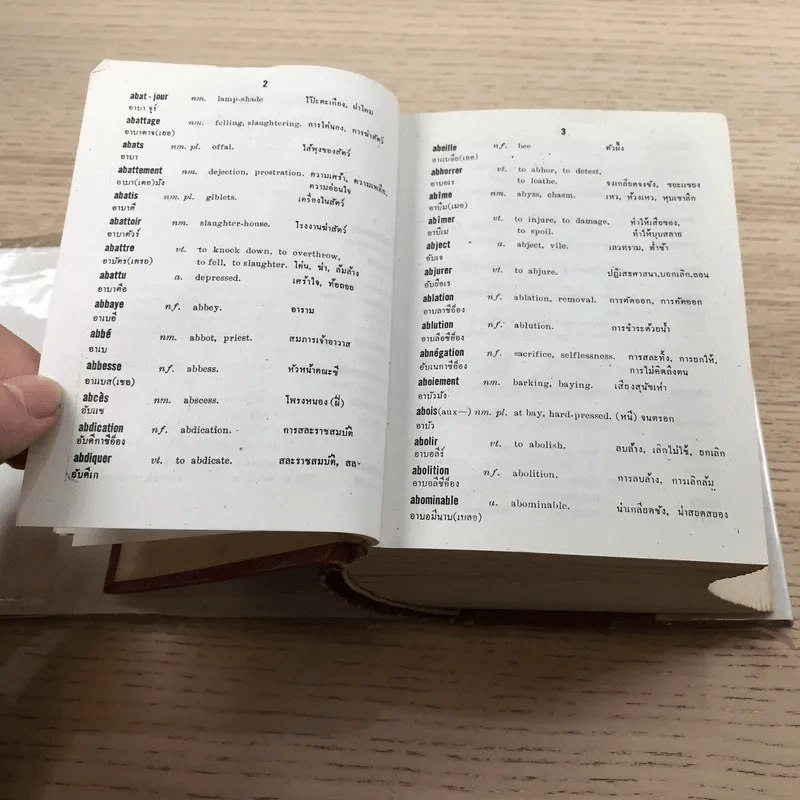 2
abat-jour nm. lamp-shade โป๊ะตะเกียง, ฝาโคม
อาบา จูร์
abattage nm. felling, slaughtering. การโค่นลง, การฆ่าสัตว์
อาบาตาจ(เยอ)
abats nm. pl. offal. ไส้พุงของสัตว์
อาบา
abattement nm. dejection, prostration. ความเศร้า, ความเพลีย,
อาบา(เตอ)มัง ความอ่อนใจ
abatis nm. pl. giblets. เครื่องในสัตว์
อาบาตี
abattoir nm. slaughter-house. โรงงานฆ่าสัตว์
อาบาตัวร์
abattre vt. to knock down, to overthrow,
อาบัตร(เตรอ) to fell, to slaughter. โค่น, ฆ่า, ล้มล้าง
abattu a. depressed. เศร้าใจ, ท้อถอย
อาบาตือ
abbaye nf. abbey. อาราม
อาเบอี
abbé nm. abbot, priest. สมภารเจ้าอาวาส
อาเบ
abbesse nf. abbess. หัวหน้าคณะชี
อาแบส(เซอ)
abcès nm. abscess. โพรงหนอง (ฝี)
อับแซ
abdication nf. abdication. การสละราชสมบัติ
อับดีกาซีอ็อง
abdiquer vt. to abdicate. สละราชสมบัติ, สละ
อับดีเก
3
abeille nf. bee ตัวผึ้ง
อาเบลีย(เยอ)
abhorrer vt. to abhor, to detest,
อาบอเร to loathe. จงเกลียดจงชัง, ขยะแขยง
abîme nm. abyss, chasm. เหว, ห้วงเหว, หุบเขาลึก
อาบีม(เมอ)
abîmer vt. to injure, to damage, ทำให้เสียของ,
อาบีเม to spoil. ทำให้บุบสลาย
abject a. abject, vile. เลวทราม, ต่ำช้า
อับเจ
abjurer vt. to abjure. ปฏิเสธศาสนา,บอกเลิก,ถอน
อับชือเร
ablation nf. ablation, removal. การตัดออก, การคัดออก
อาบลาซีอ็อง
ablution nf. ablution. การชำระด้วยน้ำ
อาบลือซีอ็อง
abnégation nf. sacrifice, selflessness. การสละทิ้ง, การยกให้,
อับเนกาซีอ็อง การไม่คิดถึงตน
aboiement nm. barking, baying. เสียงสุนัขเห่า
อาบัวมัง
abois(aux—) nm. pl. at bay, hard-pressed. (หนี) จนตรอก
อาบัว
abolir vt. to abolish. ลบล้าง, เลิกไม่ใช้, ยกเลิก
อาบอลีร์
abolition nf. abolition. การลบล้าง, การเลิกล้ม
อาบอลีซีอ็อง
abominable a. abominable. น่าเกลียดชัง, น่าสยดสยอง
อาบอมีนาบ(เบลอ)